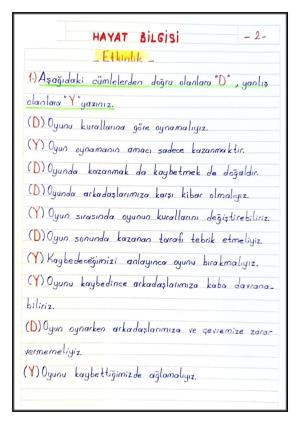 HAYAT BİLGİSİ
- 2 -
- Etkinlik -
1-) Aşağıdaki cümlelerden doğru olanlara "D", yanlış
olanlara "Y" yazınız.
(D) Oyunu kurallarına göre oynamalıyız.
(Y) Oyun oynamanın amacı sadece kazanmaktır.
(D) Oyunda kazanmak da kaybetmek de doğaldır.
(D) Oyunda arkadaşlarımıza karşı kibar olmalıyız.
(Y) Oyun sırasında oyunun kurallarını değiştirebiliriz.
(D) Oyun sonunda kazanan tarafı tebrik etmeliyiz.
(Y) Kaybedeceğimizi anlayınca oyunu bırakmalıyız.
(Y) Oyunu kaybedince arkadaşlarımıza kaba davrana-
biliriz.
(D) Oyun oynarken arkadaşlarımıza ve çevremize zarar
vermemeliyiz.
(Y) Oyunu kaybettiğimizde ağlamalıyız.